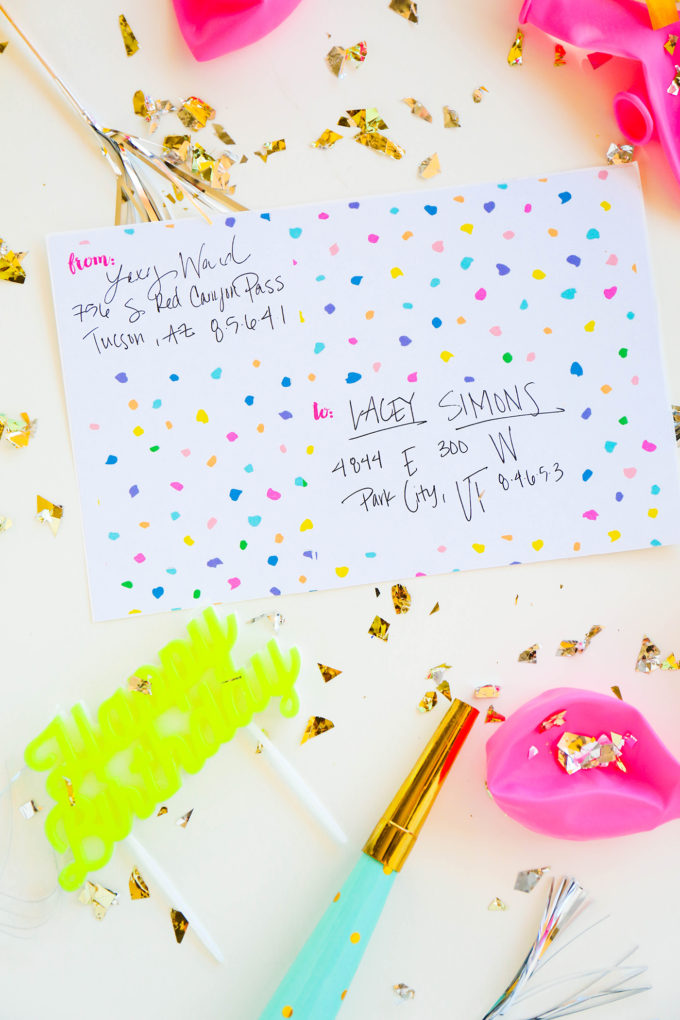 from:
Ward
756 S Red Canyon Pass
Tucson, AZ 85641
to: LACEY SIMONS
4844 E 300 W
Park City, UT 84653
Happy
Birthday